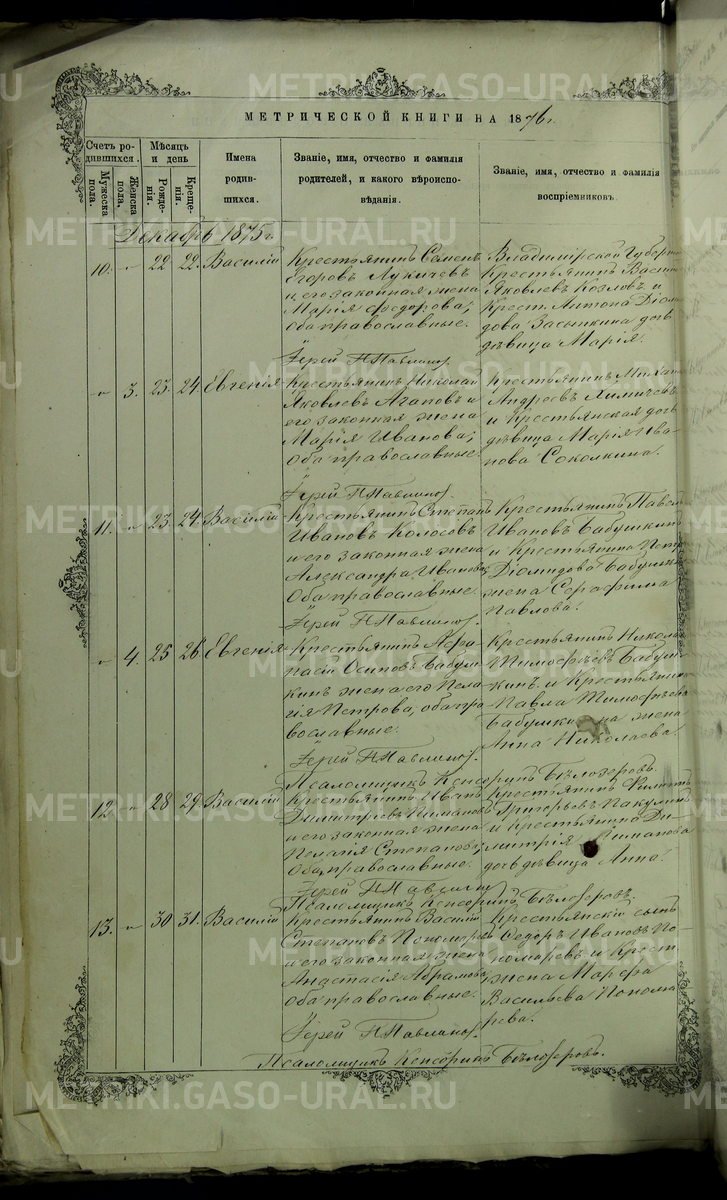 МЕТРИЧЕСКОЙ КНИГИ НА 1876 г.
Счетъ родившихся.
Мужеска пола.
Женска пола.
Мѣсяцъ и день
Рожденія.
Крещенія.
Имена родившихся.
Званіе, имя, отчество и фамилія родителей, и какого вѣроисповѣданія.
Званіе, имя, отчество и фамилія воспріемниковъ.
Декабрь 1875 г.
10. " 22 22. Василій
Крестьянинъ Семенъ
Егоровъ Лукичевъ
и его законная жена
Марія Федорова;
оба православные.
Іерей Н Павлинов.
Владимірской Губерн
Крестьянинъ Васил
Яковлевъ Козловъ и
Крест. Антона Діоми
дова Засыпкина дочь
дѣвица Марія.
" 3. 23. 24. Евгенія
Крестьянинъ Николай
Яковлевъ Агаповъ и
его законная жена
Марія Иванова;
оба православные.
Іерей Н Павлинов.
Крестьянинъ Михаи
Андреевъ
и крестьянская дочь
дѣвица Марія Ива
нова Соколкина.
11. " 23. 24. Василій
Крестьянинъ Степанъ
Ивановъ Колосовъ
и его законная жена
Александра Иванова;
Оба православные.
Іерей Н Павлинов.
Крестьянинъ Павелъ
Ивановъ Бабушкинъ
и Крестьянина Петр
Діомидова Бабушки
жена Серафима
Павлова.
" 4. 25 26 Евгенія
Крестьянинъ Афа-
насій Осиповъ Бабуш
кинъ жена его Пела
гія Петрова, оба пра
вославные.
Іерей Н Павлинов.
Псаломщикъ Кенсоринъ Бѣлозеровъ.
Крестьянинъ Никола
Тимофѣевъ Бабуш
кинъ и Крестьянина
Павла Тимофѣева
Бабушкина жена
Анна Николаева.
12 " 28 29. Василій
Крестьянинъ Иванъ
Димитріевъ Пимановъ
и его законная жена
Пелагія Степанова;
Оба православные.
Іерей Н Павлин
Псаломщикъ Кенсоринъ Бѣлозеровъ.
Крестьянинъ Филиппъ
Григорьевъ Пакулинъ
и Крестьянина Ди-
митрія Пиманова
дочь дѣвица Анна.
13. " 30 31. Василій
Крестьянинъ Василій
Степановъ Пономаревъ
и его законная жена
Анастасія Абрамова;
Оба православные.
Іерей Н Павлинов.
Крестьянскій сынъ
Федоръ Ивановъ По-
номаревъ и Крест.
жена Марфа
Васильева Понома
рева.
Псаломщикъ Кенсоринъ Бѣлозеровъ.
METRIKI.GASO-URAL.RU